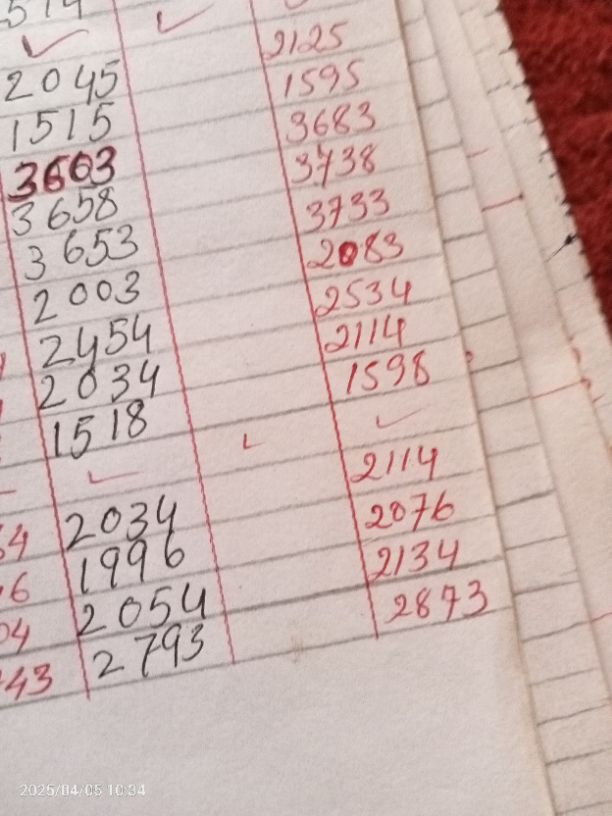 2045 2125
1515 1595
3663 3683
3658 3738
3653 3733
2003 2083
2454 2534
2034 2114
1518 1598
2034 2114
1996 2076
2054 2134
43 2793 2873
2025/04/05 10:34